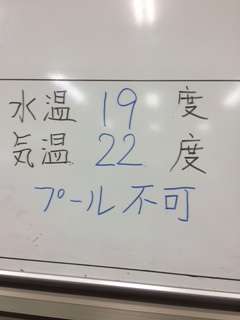 水温 19 度
気温 22 度
プール不可